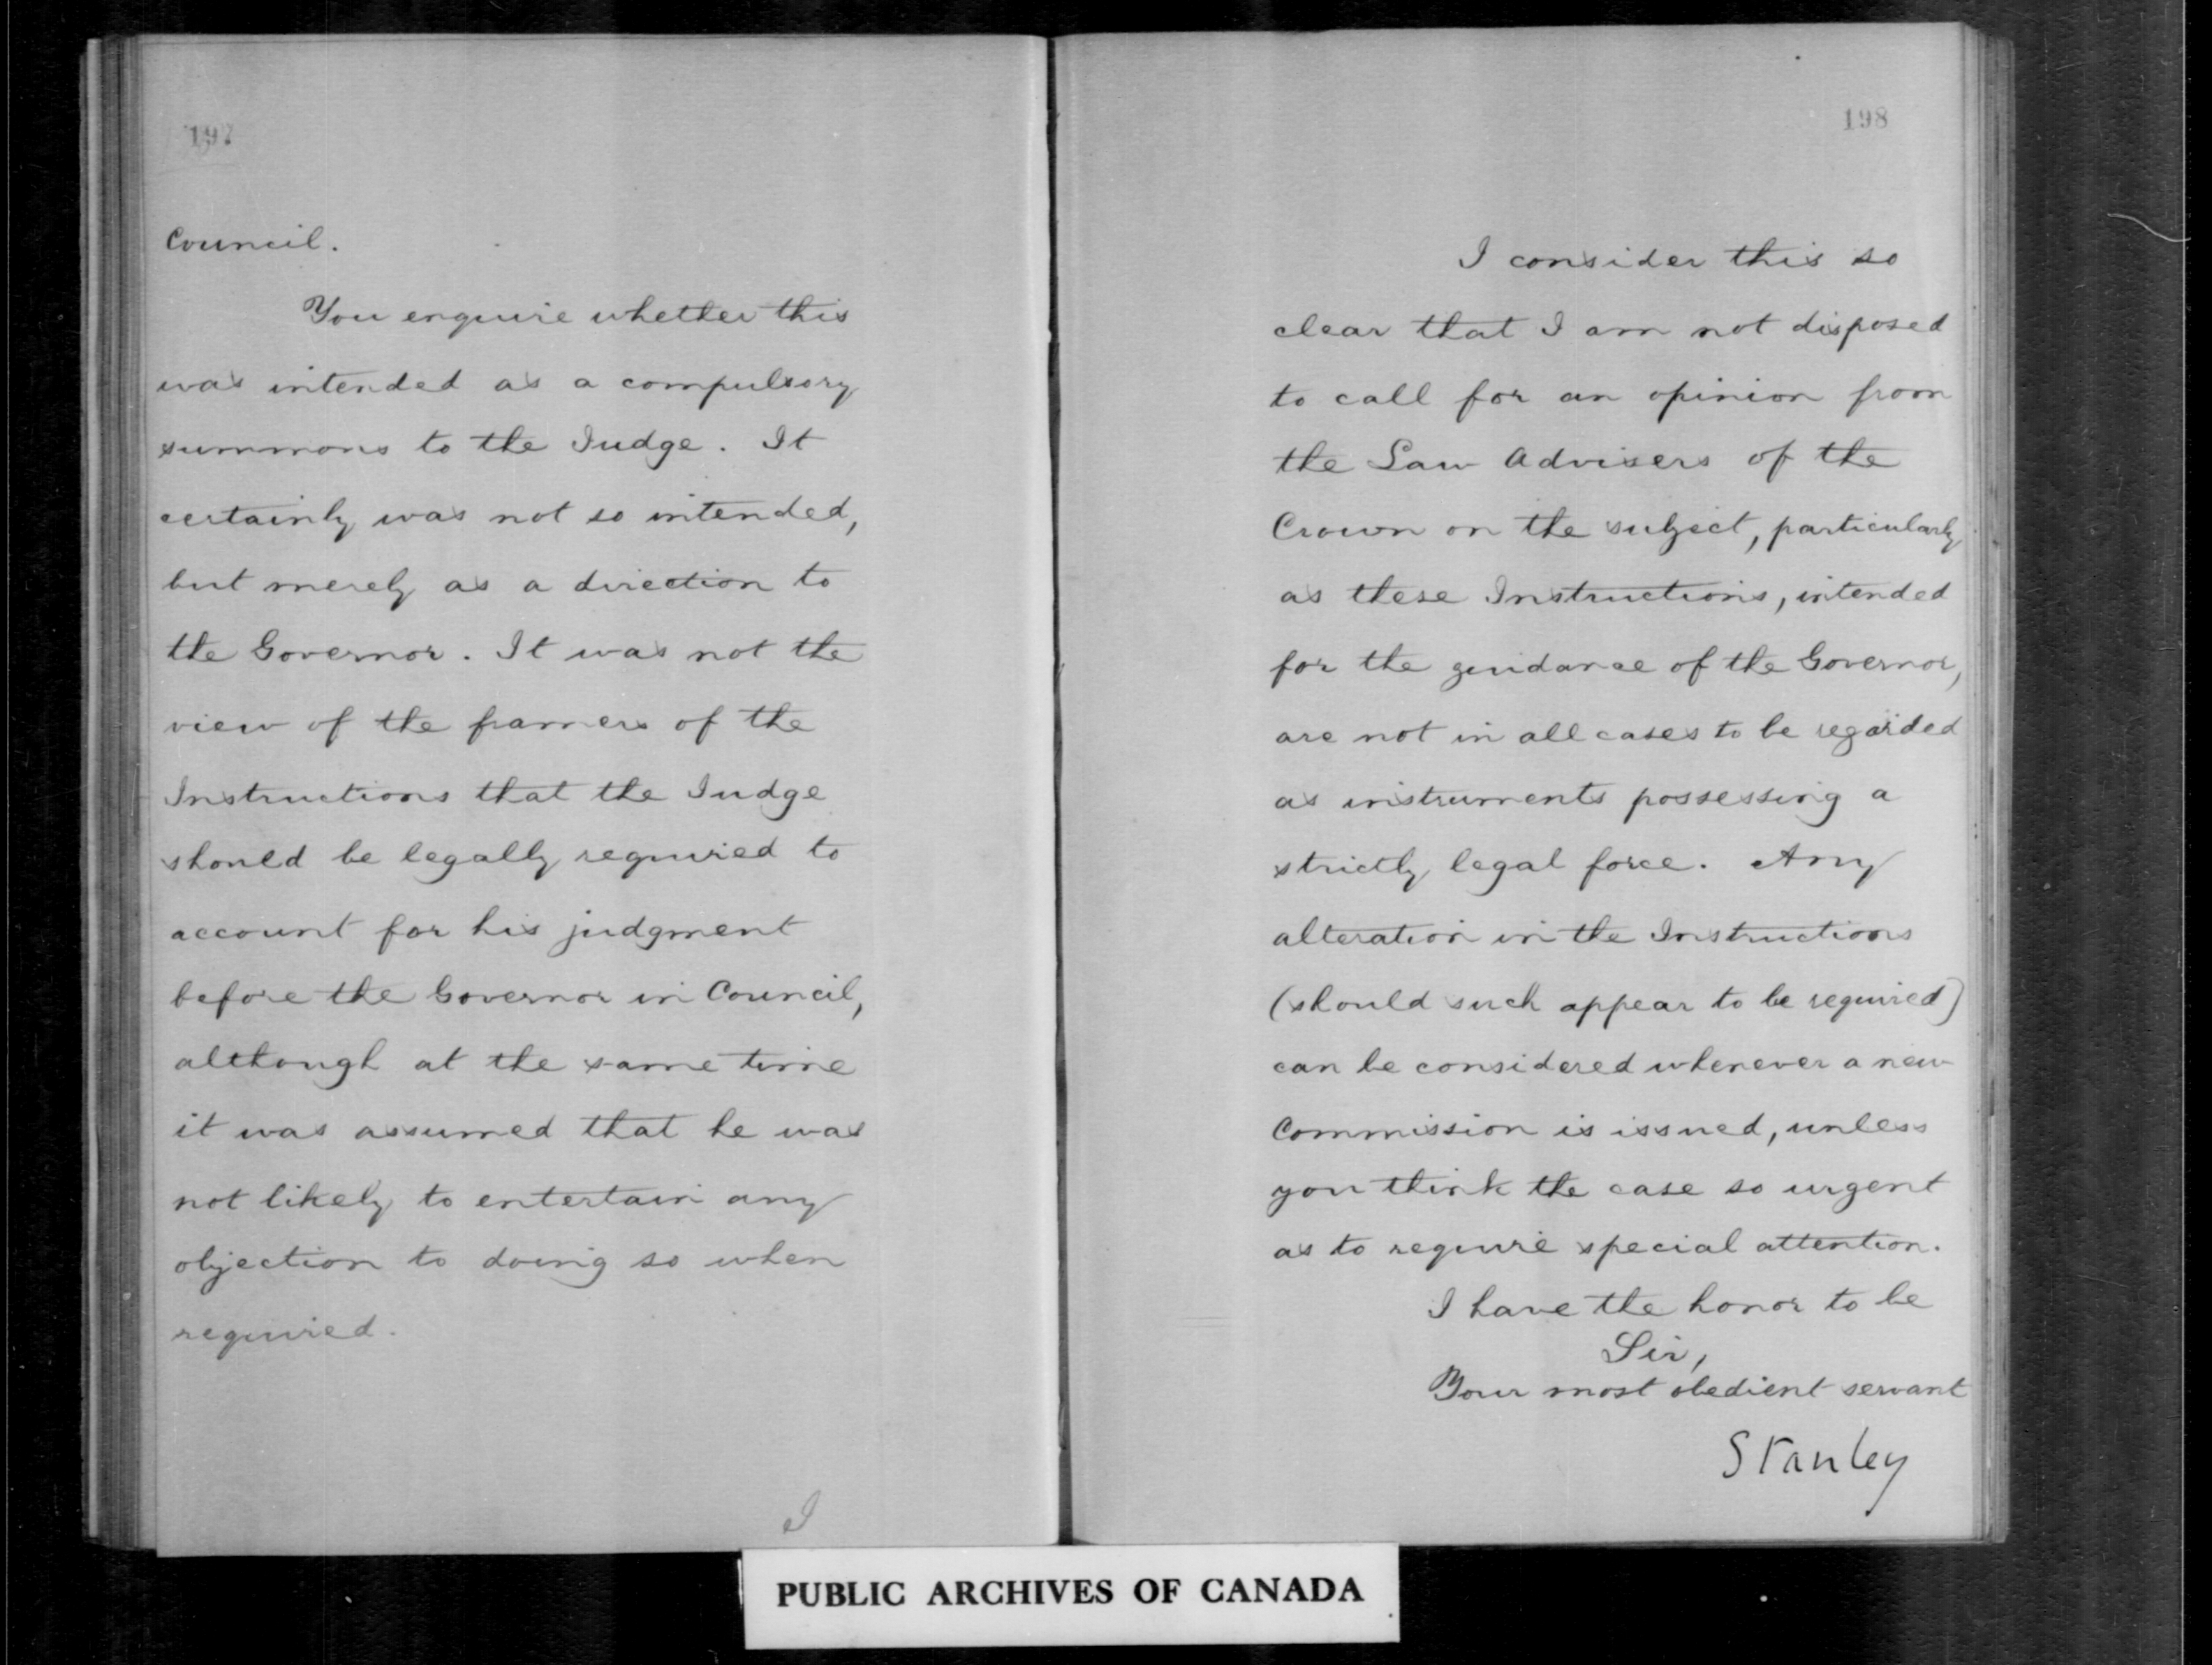 197
Council.
You enquire whether this
was intended as a compulsory
summons to the Judge. It
certainly was not so intended,
but merely as a direction to
the Governor. It was not the
view of the framers of the
Instructions that the Judge
should be legally required to
account for his judgment
before the Governor in Council,
although at the same time
it was assumed that he was
not likely to entertain any
objection to doing so when
required.
I
198
I consider this so
clear that I am not disposed
to call for an opinion from
the Law Advisers of the
Crown on the subject, particularly
as these Instructions, intended
for the guidance of the Governor,
are not in all cases to be regarded
as instruments possessing a
strictly legal force. Any
alteration in the Instructions
(should such appear to be required)
can be considered whenever a new
Commission is issued, unless
you think the case so urgent
as to require special attention.
I have the honor to be
Sir,
Your most obedient servant
Stanley
PUBLIC ARCHIVES OF CANADA